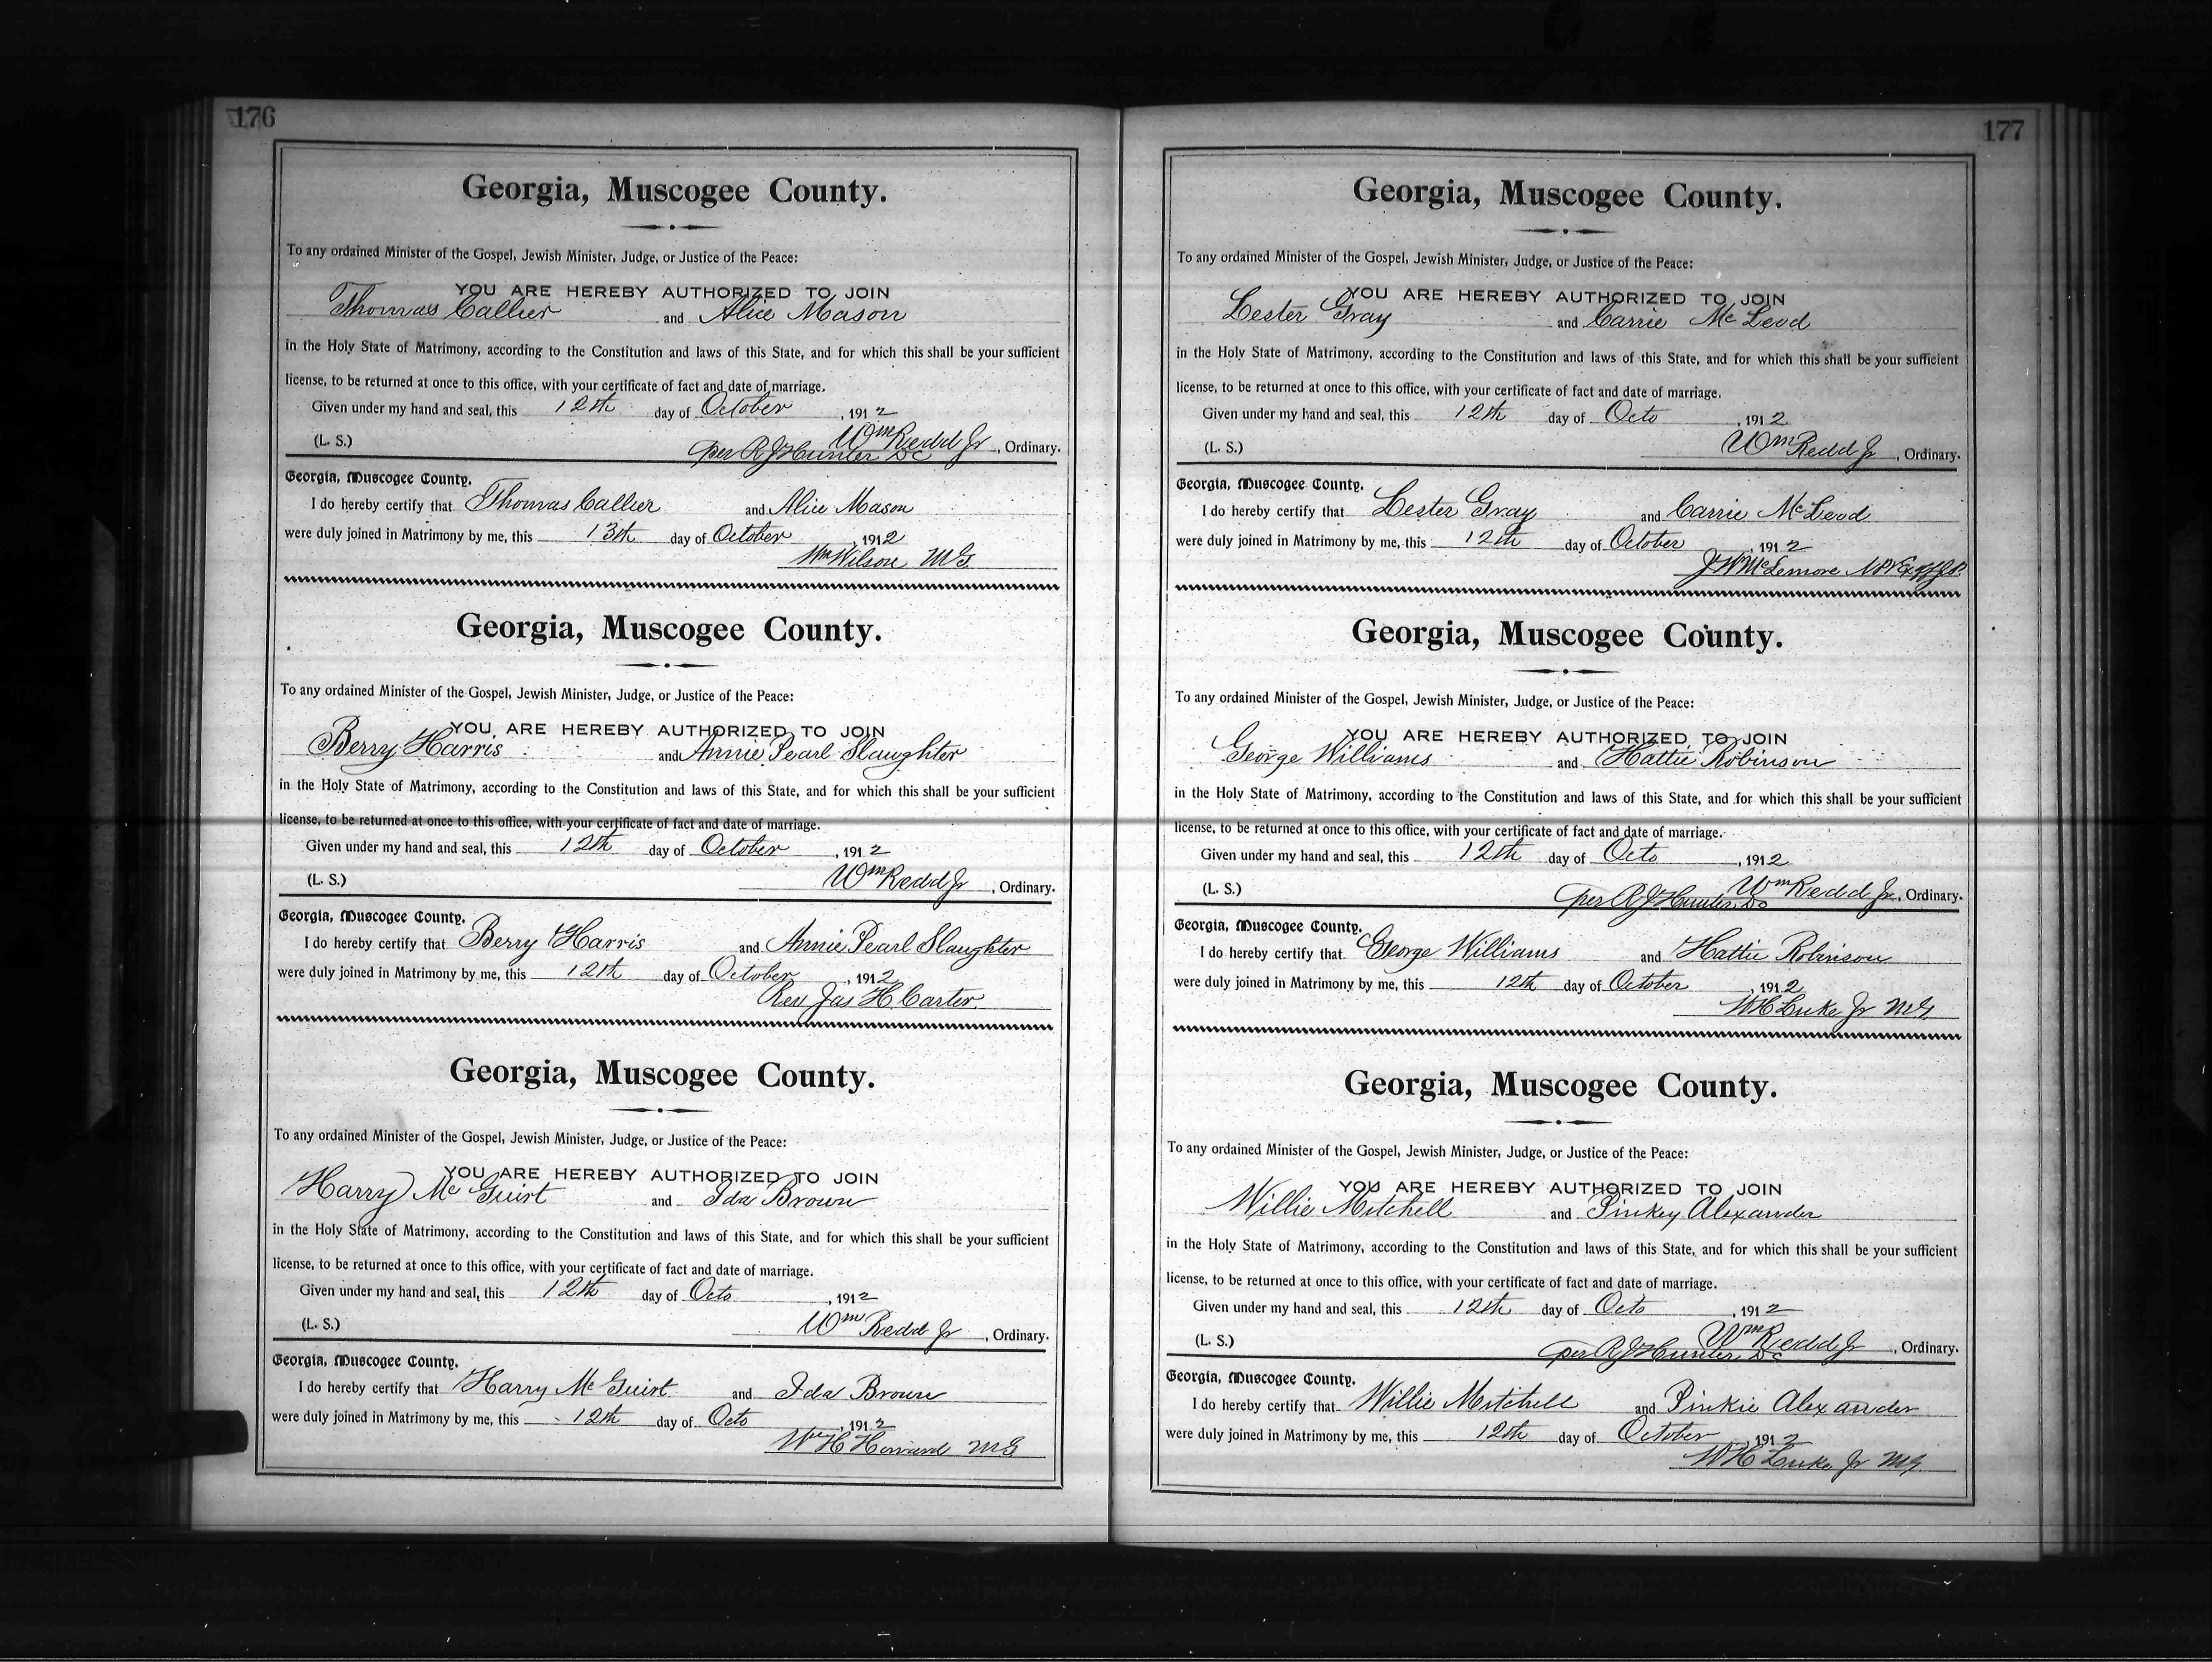 176
Georgia, Muscogee County.
To any ordained Minister of the Gospel, Jewish Minister, Judge, or Justice of the Peace:
YOU ARE HEREBY AUTHORIZED TO JOIN
Thomas Callier and Alice Mason
in the Holy State of Matrimony, according to the Constitution and laws of this State, and for which this shall be your sufficient
license, to be returned at once to this office, with your certificate of fact and date of marriage.
Given under my hand and seal, this 12th day of October, 1912
(L. S.) Wm Redd Jr, Ordinary.
per R J Hunter DC
Georgia, Muscogee County.
I do hereby certify that Thomas Callier and Alice Mason
were duly joined in Matrimony by me, this 13th day of October, 1912
Wm Wilson M G
Georgia, Muscogee County.
To any ordained Minister of the Gospel, Jewish Minister, Judge, or Justice of the Peace:
YOU ARE HEREBY AUTHORIZED TO JOIN
Berry Harris and Annie Pearl Slaughter
in the Holy State of Matrimony, according to the Constitution and laws of this State, and for which this shall be your sufficient
license, to be returned at once to this office, with your certificate of fact and date of marriage.
Given under my hand and seal, this 12th day of October, 1912
(L. S.) Wm Redd Jr, Ordinary.
Georgia, Muscogee County.
I do hereby certify that Berry Harris and Annie Pearl Slaughter
were duly joined in Matrimony by me, this 12th day of October, 1912
Rev Jas H Carter
Georgia, Muscogee County.
To any ordained Minister of the Gospel, Jewish Minister, Judge, or Justice of the Peace:
YOU ARE HEREBY AUTHORIZED TO JOIN
Harry Mc Guirt and Ida Brown
in the Holy State of Matrimony, according to the Constitution and laws of this State, and for which this shall be your sufficient
license, to be returned at once to this office, with your certificate of fact and date of marriage.
Given under my hand and seal, this 12th day of Octo, 1912
(L. S.) Wm Redd Jr, Ordinary.
Georgia, Muscogee County.
I do hereby certify that Harry Mc Guirt and Ida Brown
were duly joined in Matrimony by me, this 12th day of Octo, 1912
Wm H Howard M G
177
Georgia, Muscogee County.
To any ordained Minister of the Gospel, Jewish Minister, Judge, or Justice of the Peace:
YOU ARE HEREBY AUTHORIZED TO JOIN
Lester Gray and Carrie Mc Leod
in the Holy State of Matrimony, according to the Constitution and laws of this State, and for which this shall be your sufficient
license, to be returned at once to this office, with your certificate of fact and date of marriage.
Given under my hand and seal, this 12th day of Octo, 1912
(L. S.) Wm Redd Jr, Ordinary.
Georgia, Muscogee County.
I do hereby certify that Lester Gray and Carrie McLeod
were duly joined in Matrimony by me, this 12th day of October, 1912
J W McLemore
Georgia, Muscogee County.
To any ordained Minister of the Gospel, Jewish Minister, Judge, or Justice of the Peace:
YOU ARE HEREBY AUTHORIZED TO JOIN
George Williams and Hattie Robinson
in the Holy State of Matrimony, according to the Constitution and laws of this State, and for which this shall be your sufficient
license, to be returned at once to this office, with your certificate of fact and date of marriage.
Given under my hand and seal, this 12th day of Octo, 1912
(L. S.) Wm Redd Jr, Ordinary.
per R J Hunter DC
Georgia, Muscogee County.
I do hereby certify that George Williams and Hattie Robinson
were duly joined in Matrimony by me, this 12th day of October, 1912
W H Luke Jr M G
Georgia, Muscogee County.
To any ordained Minister of the Gospel, Jewish Minister, Judge, or Justice of the Peace:
YOU ARE HEREBY AUTHORIZED TO JOIN
Willie Mitchell and Pinkey Alexander
in the Holy State of Matrimony, according to the Constitution and laws of this State, and for which this shall be your sufficient
license, to be returned at once to this office, with your certificate of fact and date of marriage.
Given under my hand and seal, this 12th day of Octo, 1912
(L. S.) Wm Redd Jr, Ordinary.
per R J Hunter DC
Georgia, Muscogee County.
I do hereby certify that Willie Mitchell and Pinkie Alexander
were duly joined in Matrimony by me, this 12th day of October, 1912
W H Luke Jr M G